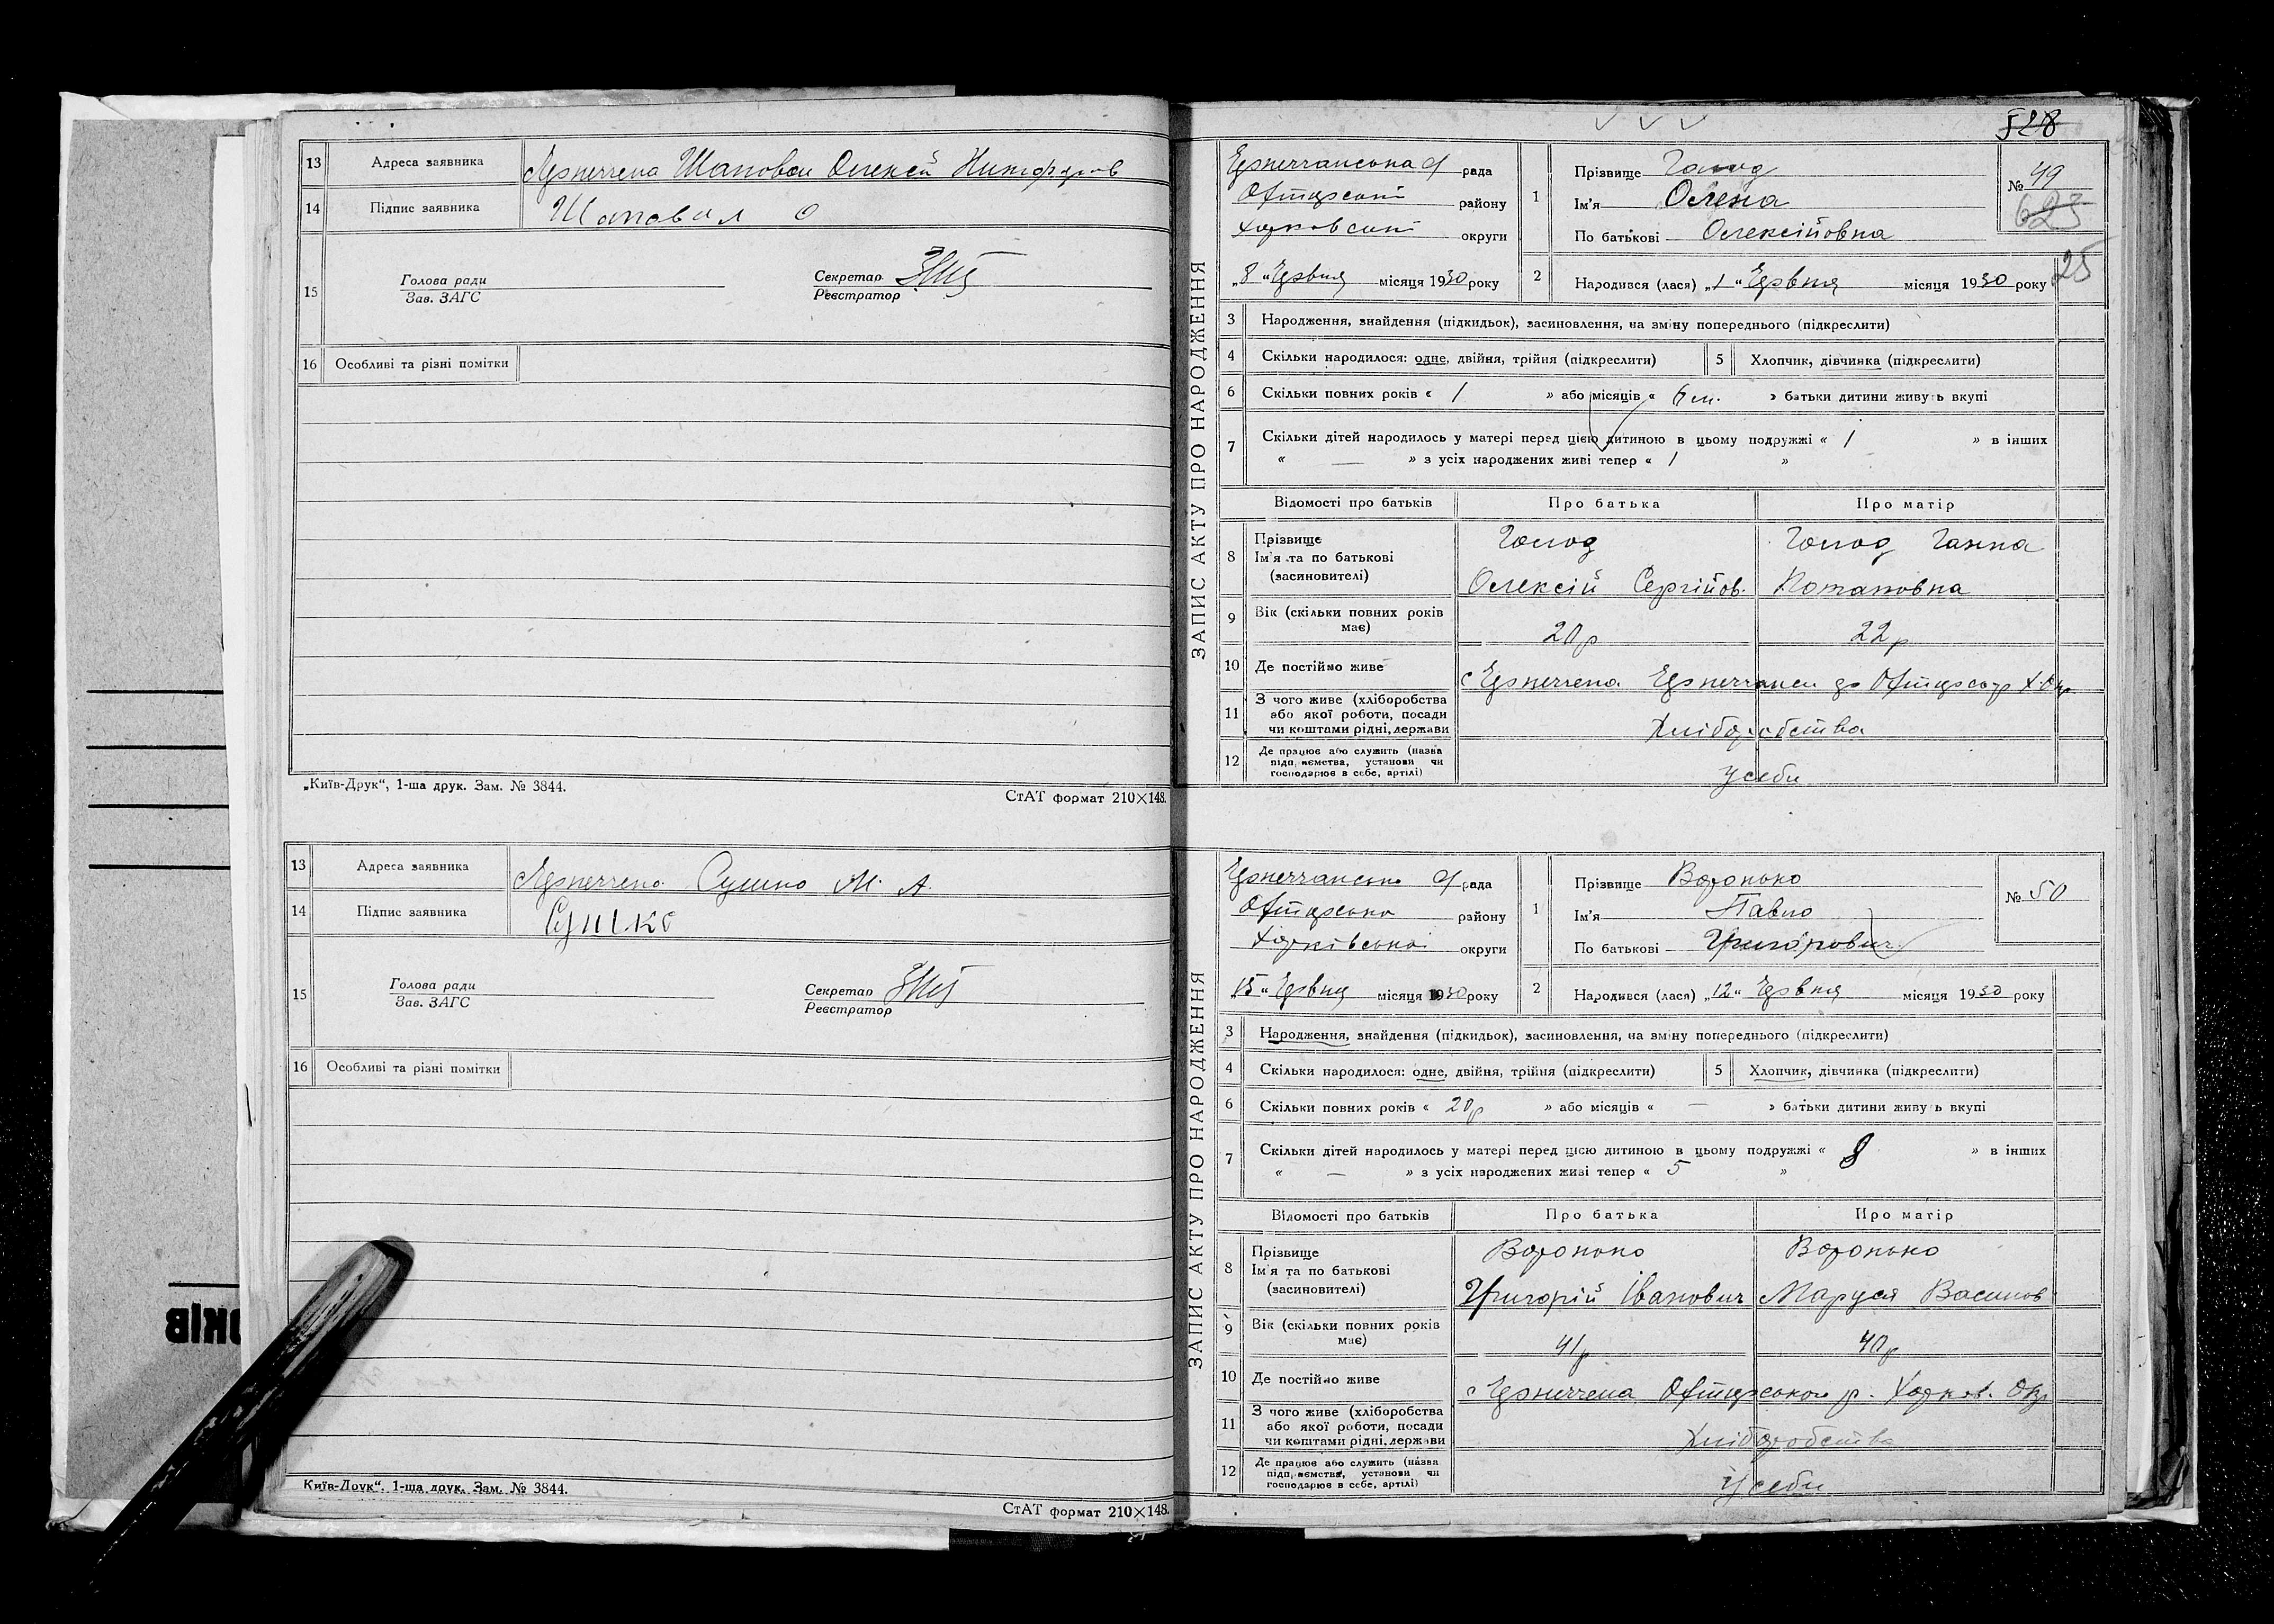 13 Адреса заявника Шаповал Олексій
14 Підпис заявника Шаповал О
15 Голова ради Секретар
Зав. ЗАГС Реєстратор
16 Особливі та різні помітки
„Київ-Друк“, 1-ша друк. Зам. № 3844.
СтАТ формат 210×148.
13 Адреса заявника Сушко М. А.
14 Підпис заявника Сушко
15 Голова ради Секретар
Зав. ЗАГС Реєстратор
16 Особливі та різні помітки
Київ-Друк“. 1-ша друк. Зам. № 3844.
СтАТ формат 210×148.
ОКІВ
528
ЗАПИС АКТУ ПРО НАРОДЖЕННЯ
рада
району
округи
„8“ Червня місяця 1930 року
1 Прізвище Голод
Ім'я Олена
По батькові Олексійовна
№ 49
623
25
2 Народився (лася) „1“ Червня місяця 1930 року
3 Народження, знайдення (підкидьок), засиновлення, на зміну попереднього (підкреслити)
4 Скільки народилося: одне, двійня, трійня (підкреслити) 5 Хлопчик, дівчинка (підкреслити)
6 Скільки повних років « 1 » або місяців « 6 м. » батьки дитини живуть вкупі
7 Скільки дітей народилось у матері перед цією дитиною в цьому подружжі « 1 » в інших
« — » з усіх народжених живі тепер « 1 »
Відомості про батьків Про батька Про матір
8 Прізвище Голод Голод Ганна
Ім'я та по батькові
(засновителі) Олексій Сергійов. Потаповна
9 Вік (скільки повних років має) 20 р 22 р
10 Де постійно живе
11 З чого живе (хліборобства
або якої роботи, посади
чи коштами рідні, держави Хліборобства
12 Де працює або служить (назва
підприємства, установи чи
господарює в себе, артілі) У себе
ЗАПИС АКТУ ПРО НАРОДЖЕННЯ
рада
району
Харківської округи
„15“ Червня місяця 1930 року
1 Прізвище Воронько
Ім'я Павло
По батькові Григорович
№ 50
2 Народився (лася) „12“ Червня місяця 1930 року
3 Народження, знайдення (підкидьок), засиновлення, на зміну попереднього (підкреслити)
4 Скільки народилося: одне, двійня, трійня (підкреслити) 5 Хлопчик, дівчинка (підкреслити)
6 Скільки повних років « 20 р » або місяців « — » батьки дитини живуть вкупі
7 Скільки дітей народилось у матері перед цією дитиною в цьому подружжі « 8 » в інших
« — » з усіх народжених живі тепер « 5 »
Відомості про батьків Про батька Про матір
8 Прізвище Воронько Воронько
Ім'я та по батькові
(засиновителі) Григорій Іванович Маруся Васильов
9 Вік (скільки повних років має) 41 р 40 р
10 Де постійно живе
11 З чого живе (хліборобства
або якої роботи, посади
чи коштами рідні, держави Хліборобства
12 Де працює або служить (назва
підприємства, установи чи
господарює в себе, артілі) У себе